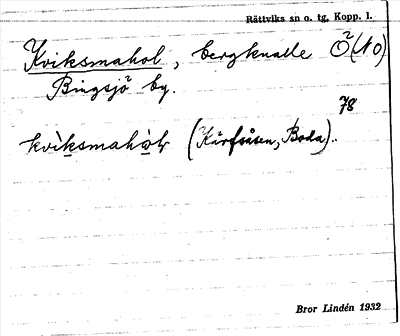 Rättviks sn o. tg, Kopp. l.
Kviksmahol, bergknalle Ö(NO)
Bingsjö by.
78
kvìksmahòɫ (Kårfsåsen, Boda).
Bror Lindén 1932